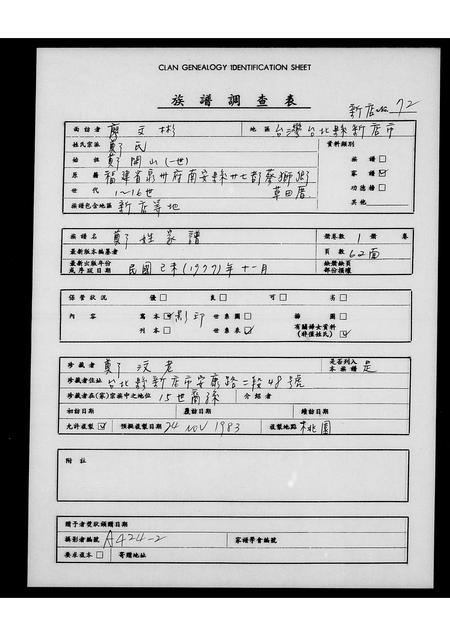 CLAN GENEALOGY IDENTIFICATION SHEET
族譜調查表
新店No. 72
面訪者 廖文彬 地區 台灣台北縣新店市
姓氏宗派 鄭氏 資料類別
始祖 鄭開山(一世) 族譜 □
原籍 福建省泉州府南安縣廿七都蔡獅鄉 家譜 ☑
世代 1~16世 草田厝 功德榜 □
族譜包含地區 新店等地 其他
族譜名 鄭姓家譜 冊卷數 1 冊 卷
最新版本編纂者 頁數 62面
最新出版年份或序跋日期 民國己未(1977)年十一月 缺欄缺頁部份損壞
保管狀況 優□ 良□ 可□ 劣□
內容 寫本☑影印 世系圖□ 譜圖□
刊本□ 世系表☑ 有關婦女資料(非僅姓氏)☑
珍藏者 鄭汶老 是否列入本族譜 是
珍藏者住址 台北縣新店市安康路二段48號
珍藏者在(家)宗族中之地位 15世裔孫 介紹者
初訪日期 覆訪日期 續訪日期
允許複製☑ 預擬複製日期 24 NOV 1983 複製地點 桃園
附註
贈予者獎狀頒贈日期
攝影者編號 A424-2 家譜學會編號
要求複本□ 寄贈地址